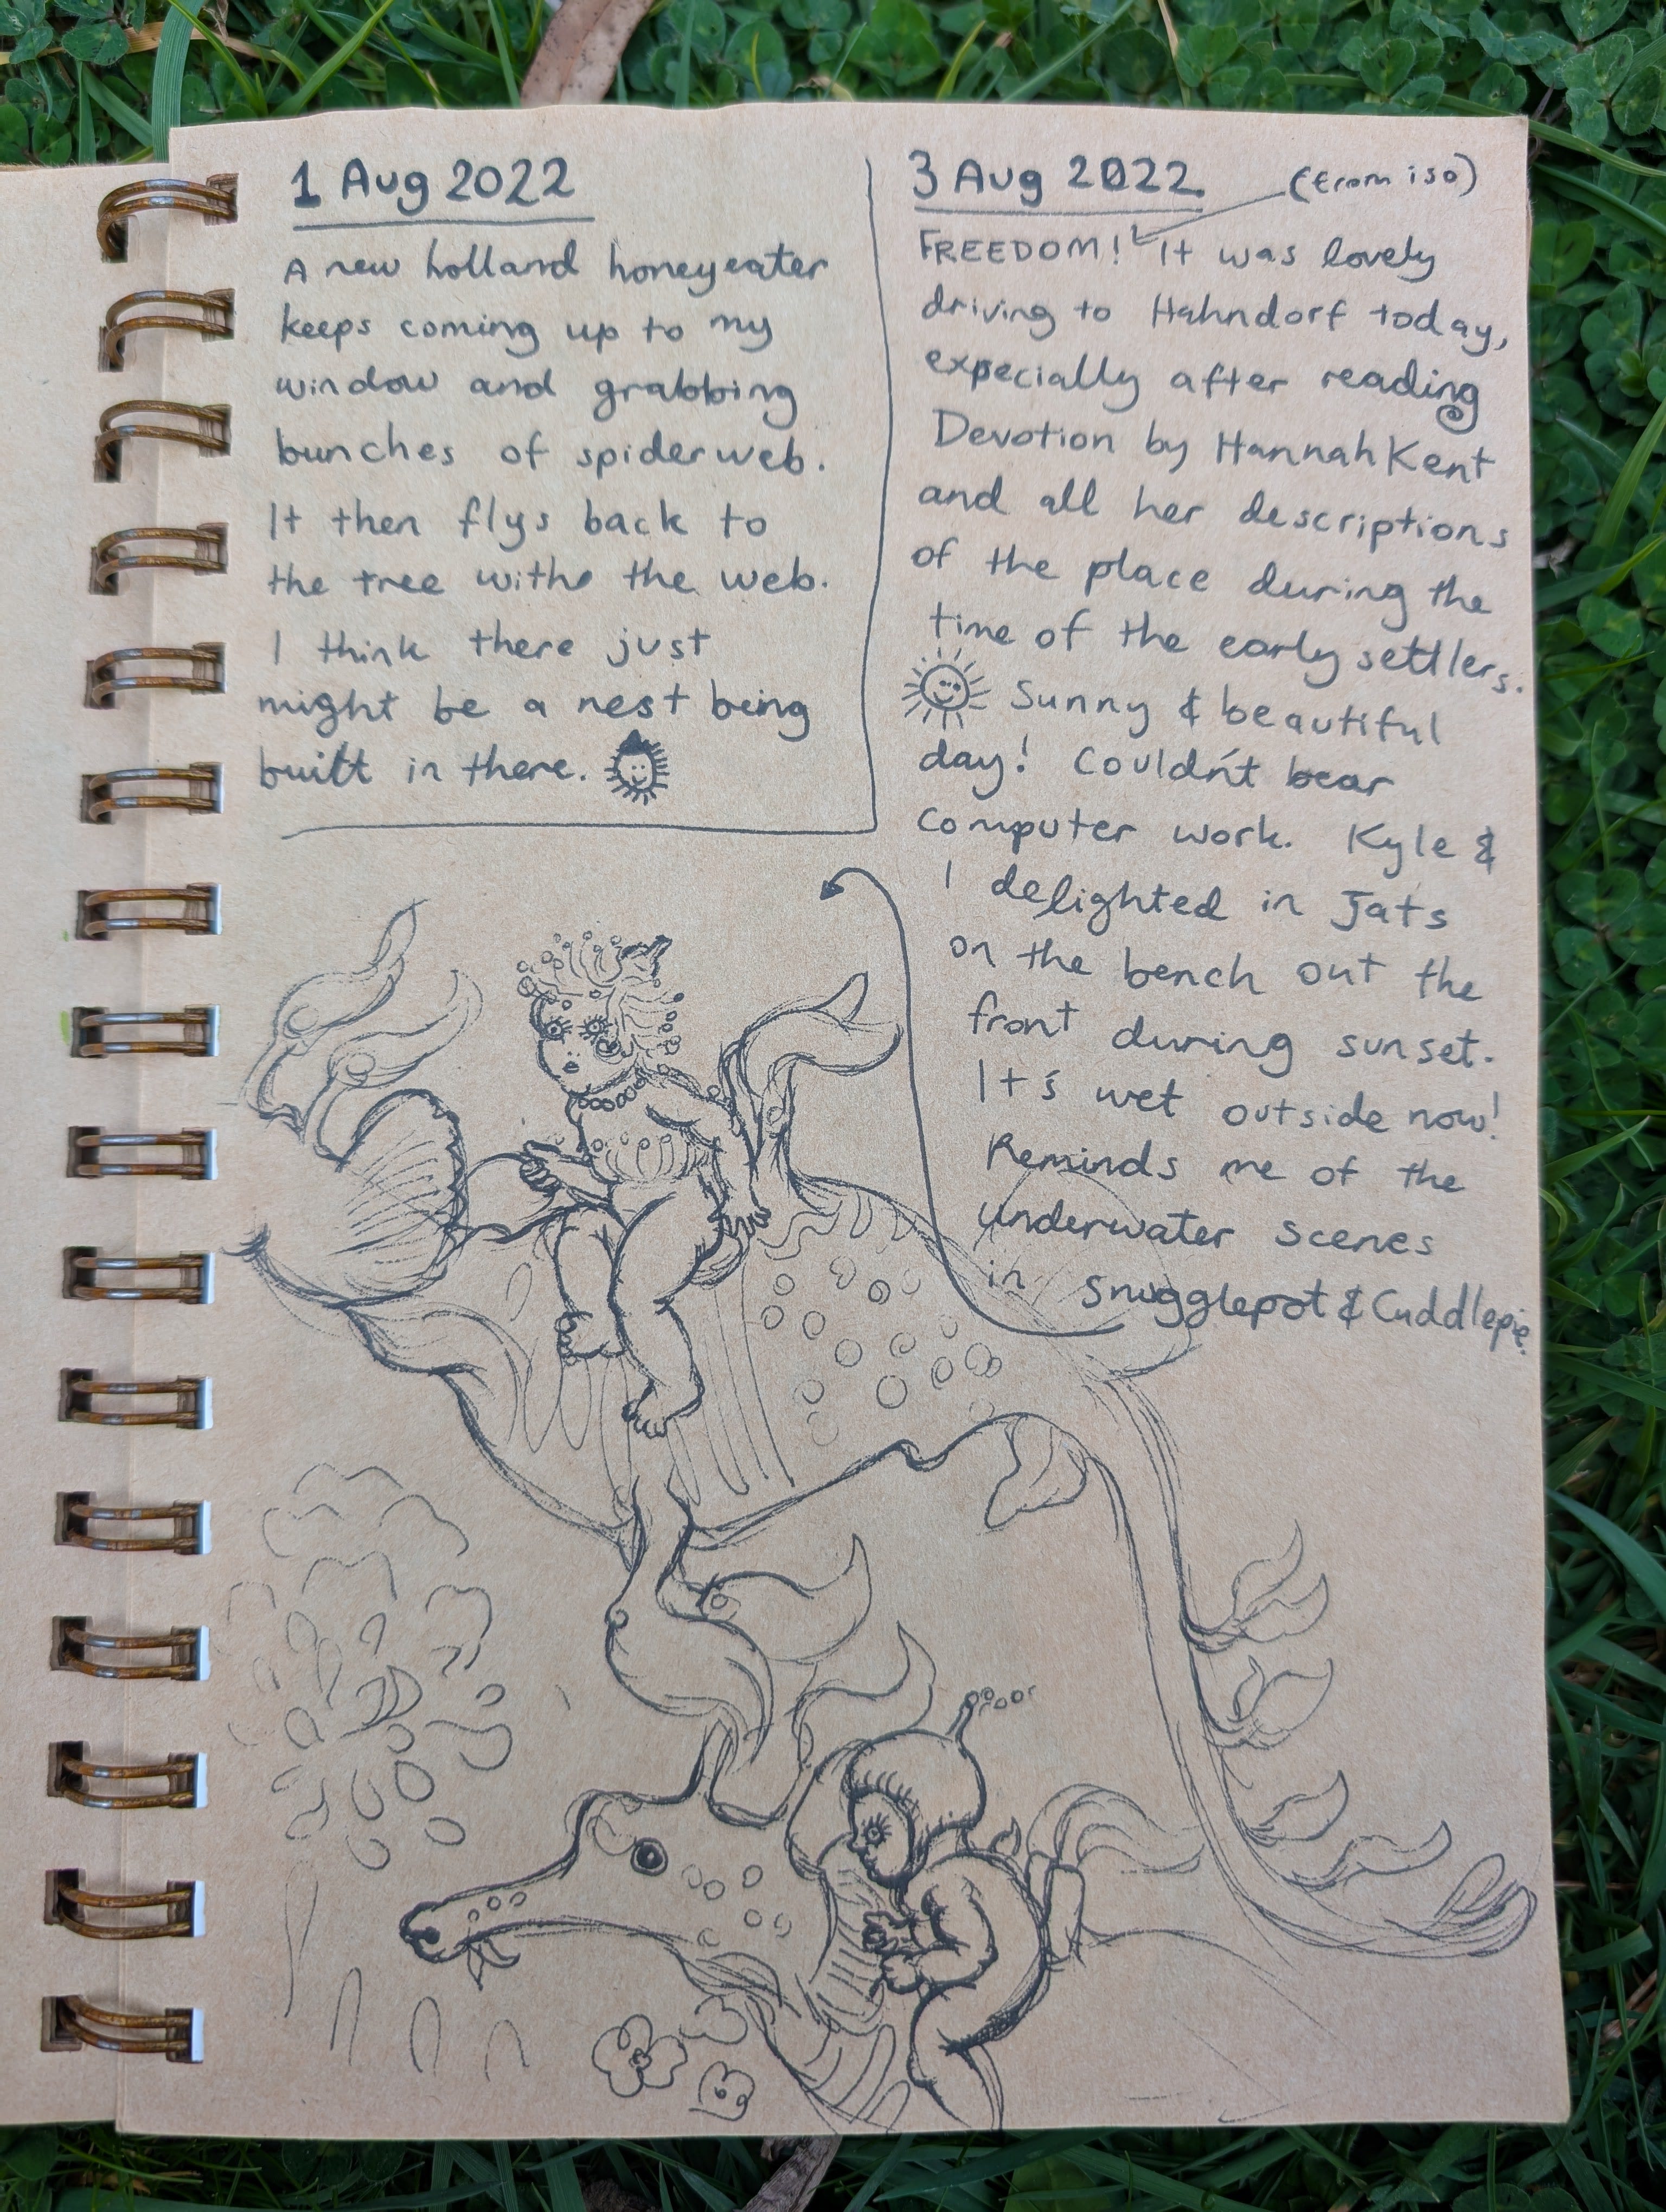 1 Aug 2022
A new holland honeyeater
keeps coming up to my
window and grabbing
bunches of spiderweb.
It then flys back to
the tree with the web.
I think there just
might be a nest being
built in there.
3 Aug 2022
(from iso)
FREEDOM! It was lovely
driving to Hahndorf today,
especially after reading
Devotion by Hannah Kent
and all her descriptions
of the place during the
time of the early settlers.
Sunny & beautiful
day! Couldn't bear
computer work. Kyle &
I delighted in Jats
on the bench out the
front during sunset.
It's wet outside now!
Reminds me of the
underwater scenes
in Snugglepot & Cuddlepie.